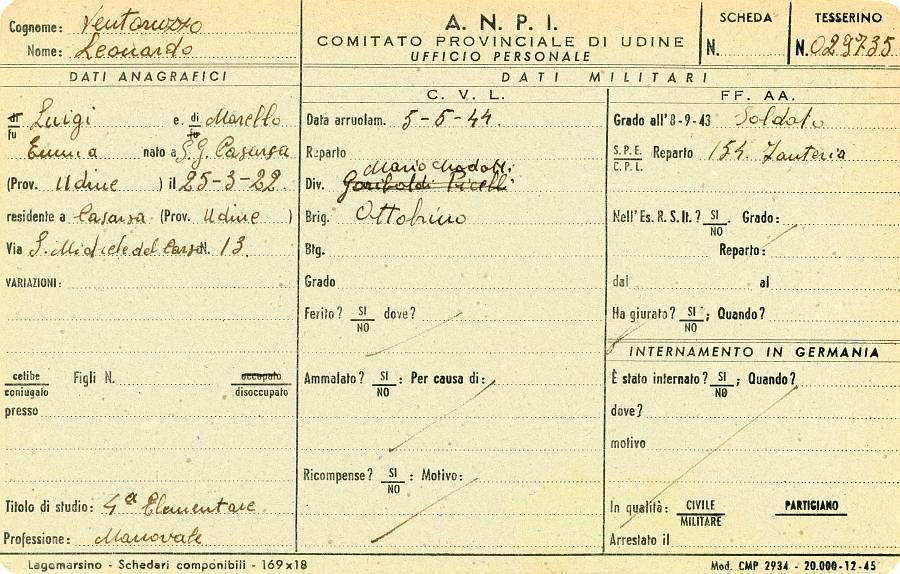 Cognome: Ventoruzzo
Nome: Leonardo
A. N. P. I.
COMITATO PROVINCIALE DI UDINE
UFFICIO PERSONALE
SCHEDA
N.
TESSERINO
N. 029735
DATI ANAGRAFICI
di/fu Luigi e di/fu Morello
Emma nato a S.G. Casarsa
(Prov. Udine ) il 25-3-22.
residente a Casarsa (Prov. Udine )
Via S. Michele del Carso N. 13.
VARIAZIONI:
celibe/coniugato Figli N. occupato/disoccupato
presso
Titolo di studio: 4ª Elementare
Professione: Manovale
DATI MILITARI
C. V. L.
Data arruolam. 5-5-44.
Reparto
Mario Modotti
Div. Garibaldi Picelli
Brig. Ottobrino
Btg.
Grado
Ferito? SI/NO dove?
Ammalato? SI/NO : Per causa di:
Ricompense? SI/NO : Motivo:
FF. AA.
Grado all'8-9-43 Soldato
S.P.E./C.P.L. Reparto 154. Fanteria
Nell'Es. R. S. It.? SI/NO. Grado:
Reparto:
dal al
Ha giurato? SI/NO; Quando?
INTERNAMENTO IN GERMANIA
È stato internato? SI/NO; Quando?
dove?
motivo
In qualità: CIVILE/MILITARE PARTIGIANO
Arrestato il
Lagomarsino - Schedari componibili - 169x18
Mod. CMP 2934 - 20.000-12-45